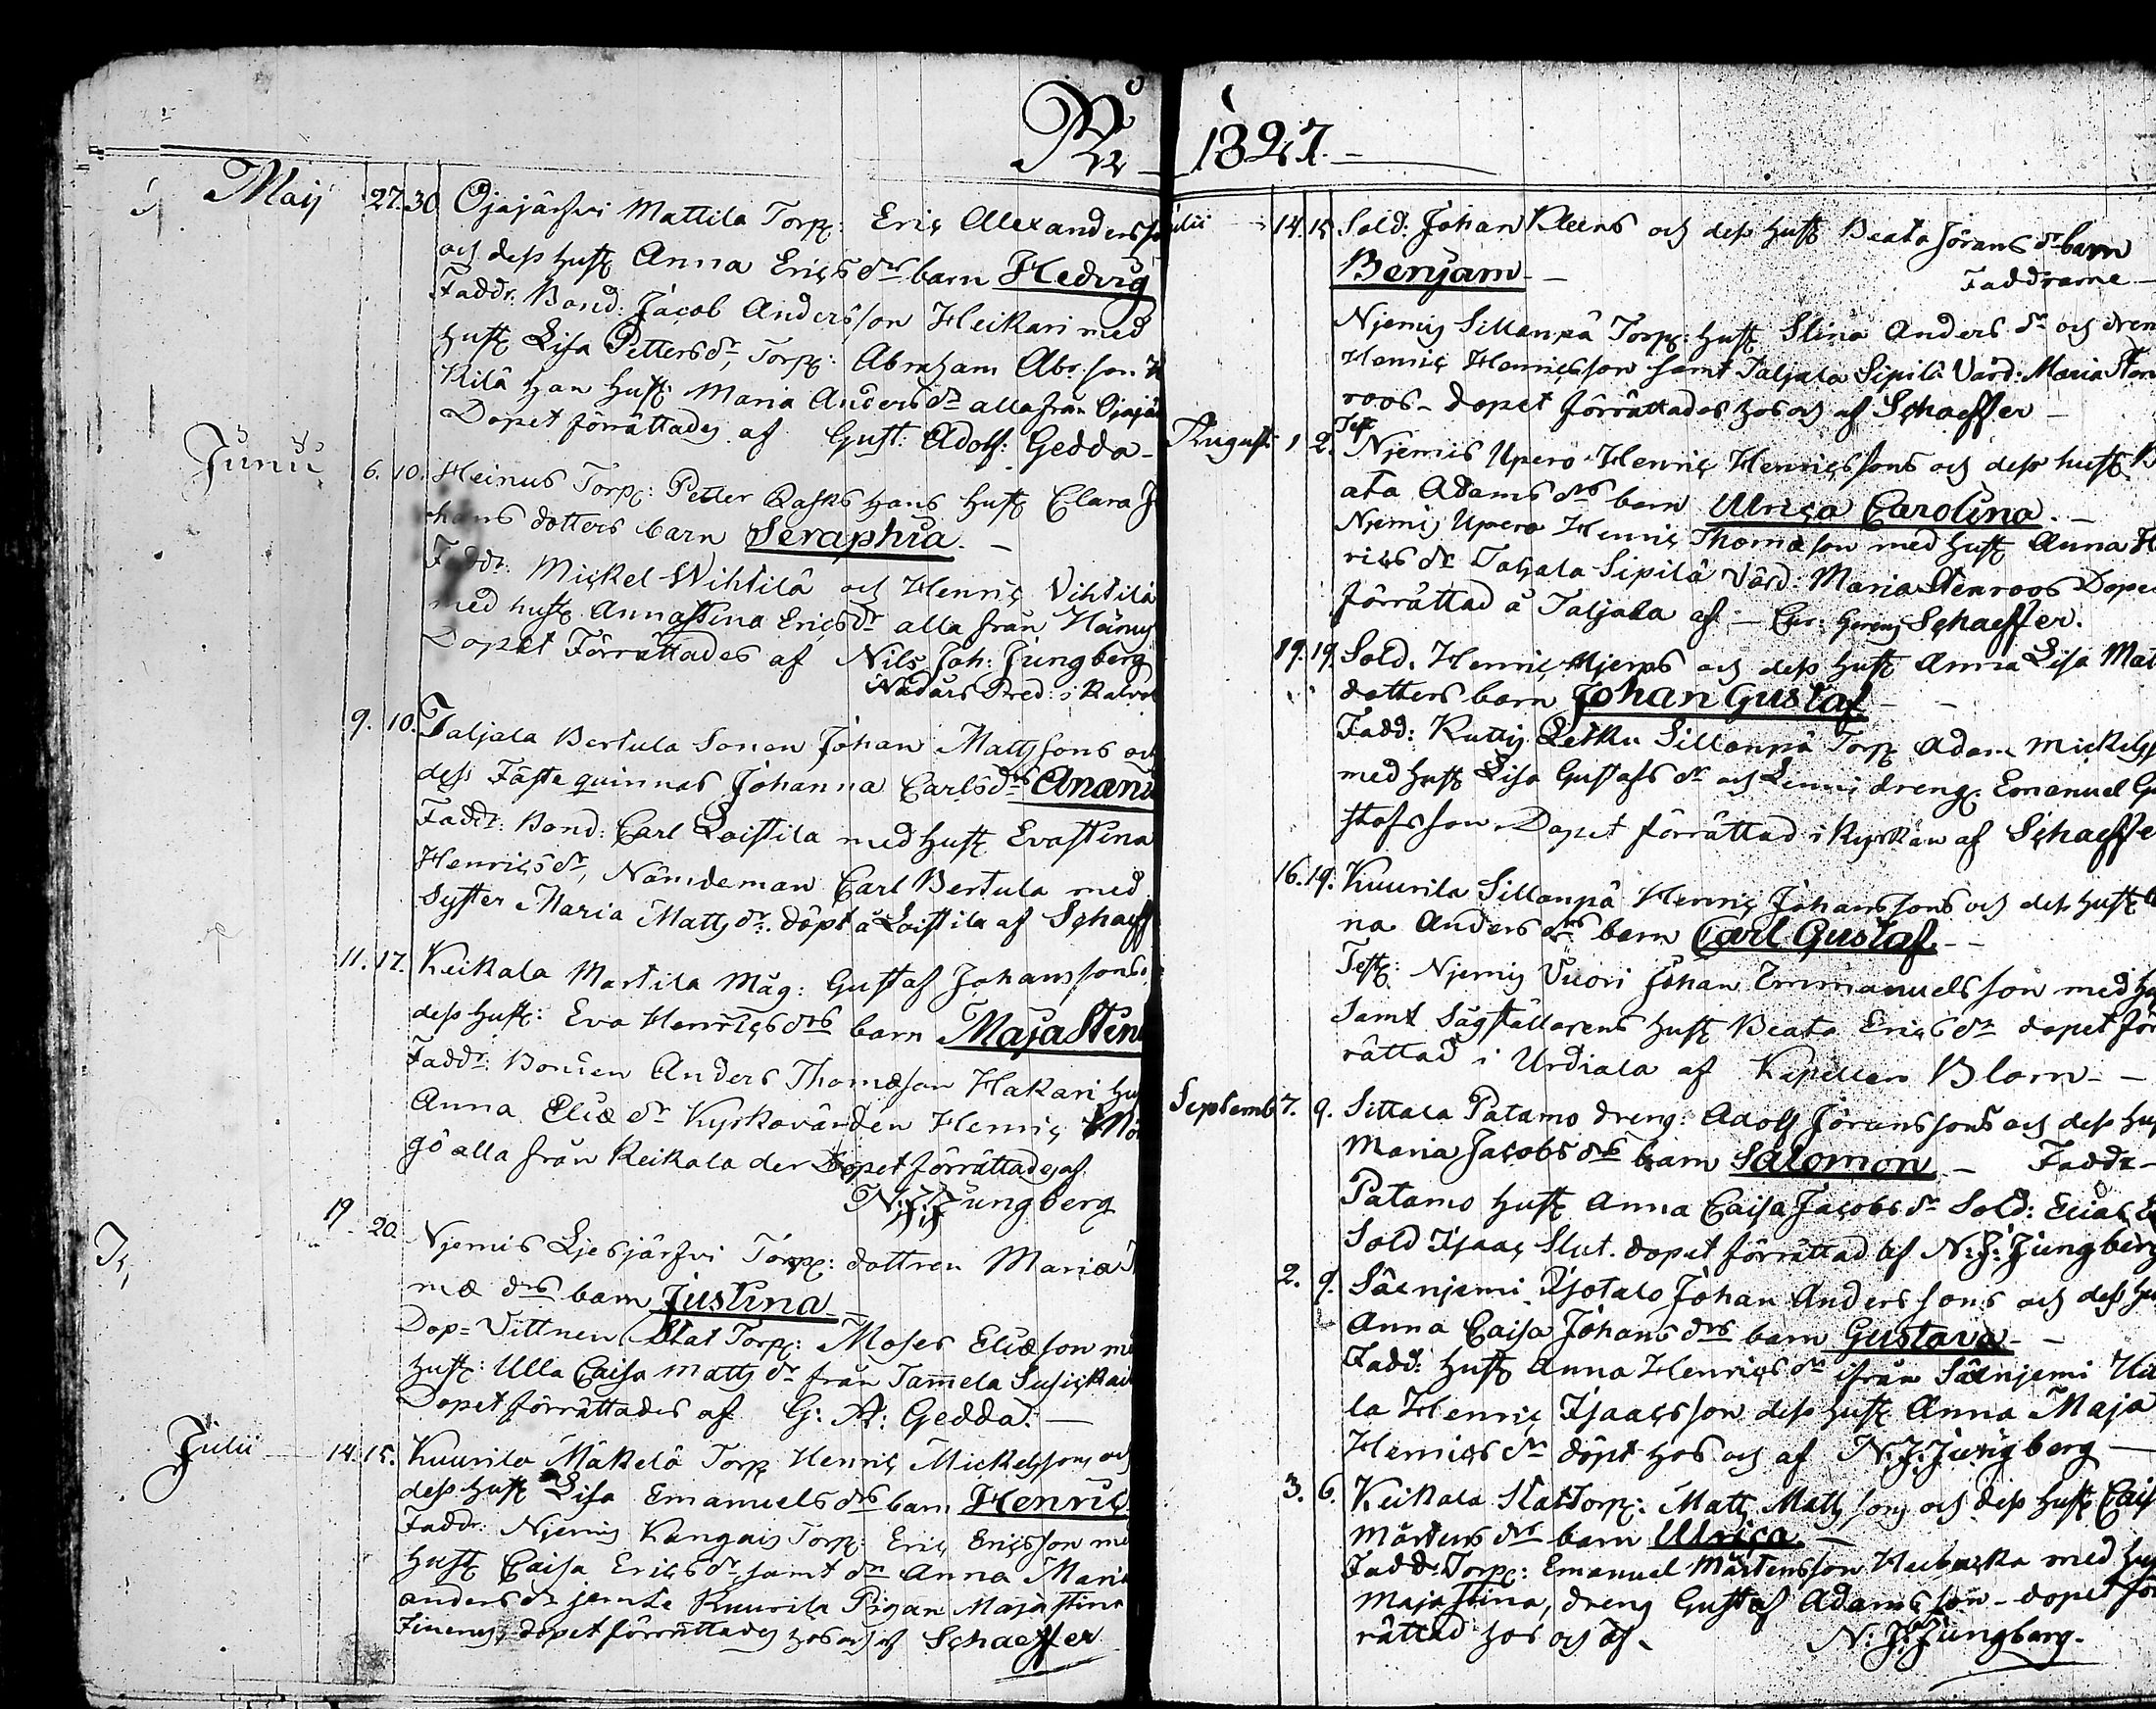 1827.
Maij 27. 30. Ojajärfvi Mattila Torp: Eric Alexanders
och dess hust Anna Erics dr barn Hedvig
Faddr. Bond: Jacob Andersson Heikari med
hust Lisa Petters dr, Torp: Abraham Abr. son
Kilä Han hust: Maria Anders dr alla från Ojajär
Dopet förrättades af Gust: Adolf: Gedda -
Junii 6. 10. Heinus Torp: Petter Rasks Hans hust Clara J
hans dotters barn Seraphia. -
Faddr. Mickel Wihtilä och Henric Vihtilä
med hust Annastina Erics dr alla från
Dopet Förrättades af Nils Joh: Jungberg
Nådårs Pred: i Kalvol
9. 10. Taljala Bertula Sonen Johan Mattssons och
dess Fäste quinnas Johanna Carls drs Anani
Faddr: Bond: Carl Loistila med hust Evastina
Henrics dr, Nämdeman Carl Bertula med
Syster Maria Matts dr. döpt å Loistila af Schaeff
11. 17. Keikala Martila Måg: Gustaf Johanssons
dess hust: Eva Henrics drs barn Maja Stin
Faddr: Bonden Anders Thomæson Hakari hu
Anna Eliæ dr Kyrkovärden Henric
gö alla från Keikala der Dopet förrättades af
N: J: Jungberg
19 20. Njemis Ljesjärfvi Torp: dottren Maria T
mæ drs barn Justina -
Dop= Vittnen Stat Torp: Moses Eliæson me
hust: Ulla Caisa Matts dr från Tammela
Dopet förrättades af G: A: Gedda. -
Julii 14. 15. Kuurila Mäkelä Torp Henric Mickelssons och
dess hust Lisa Emanuels drs barn Henric
Faddr. Njemis Kangais Torp: Eric Ericsson me
hust Caisa Erics dr samt dr Anna Maria
anders dr jemte Kuurila Pigan Majastina
dopet förrättades hos och af Schaeffer
ulii 14. 15. Sold: Johan Kleens och dess hust Beata Jörans dr barn
Benjam - Faddrarne -
Njemis Sillanpä Torp: hust Stina Anders dr och dren
Henric Henricsson samt Taljala Sipilä Värd: Maria Sten
roos - dopet förrättades hos och af Schaeffer -
August 1 2. Njemis Upero Henric Henricssons och dess hust B
ata Adams drs barn Ulrica Carolina. -
Njemis Upero Henric Thomæson med hust Anna H
rics dr Taljala Sipilä Värd: Maria Stenroos Dope
förrättad å Taljala af - Schaeffer.
19. 19. Sold. Henric Hjerps och dess hust Anna Lisa Mat
dotters barn Johan Gustaf -
Fadd: Kuttis Letku Sillanpä Torp Adam Mickelss
med hust Lisa Gustafs dr och dreng: Emanuel Gu
stafsson. Dopet förrättad i Kyrkan af Schaeffe
16. 19. Kuurila Sillanpä Henric Johanssons och dess hust
na Anders drs barn Carl Gustaf - -
Test: Njemis Vuori Johan Emmanuelsson med hu
samt Sågställarens hust Beata Erics dr dopet för
rättad i Urdiala af Kapellan Blom - -
Septemb 7. 9. Sittala Patamo dreng: Adolf Jöranssons och dess hu
Maria Jacobs drs barn Salomon - Faddr -
Patamo hust Anna Caisa Jacobs dr Sold: Elias
Sold Isaac Slut. dopet förrättad af N: J: Jungberg
2. 9. Säenjemi Isotalo Johan Anderssons och dess hu
Anna Caisa Johans drs barn Gustava - -
Fadd: hust Anna Henrics dr ifrån Säenjemi
la Henric Isaacsson dess hust Anna Maja
Henrics dr döpt hos och af N. J. Jungberg -
3. 6. Keikala Stat Torp: Matts Mattssons och dess hust Cais
Mårtens drs barn Ulrica. -
Fadd Torp: Emanuel Mårtensson med hu
Majastina, dreng Gustaf Adamsson - dopet för
rättad hos och af. N: J: Jungberg.